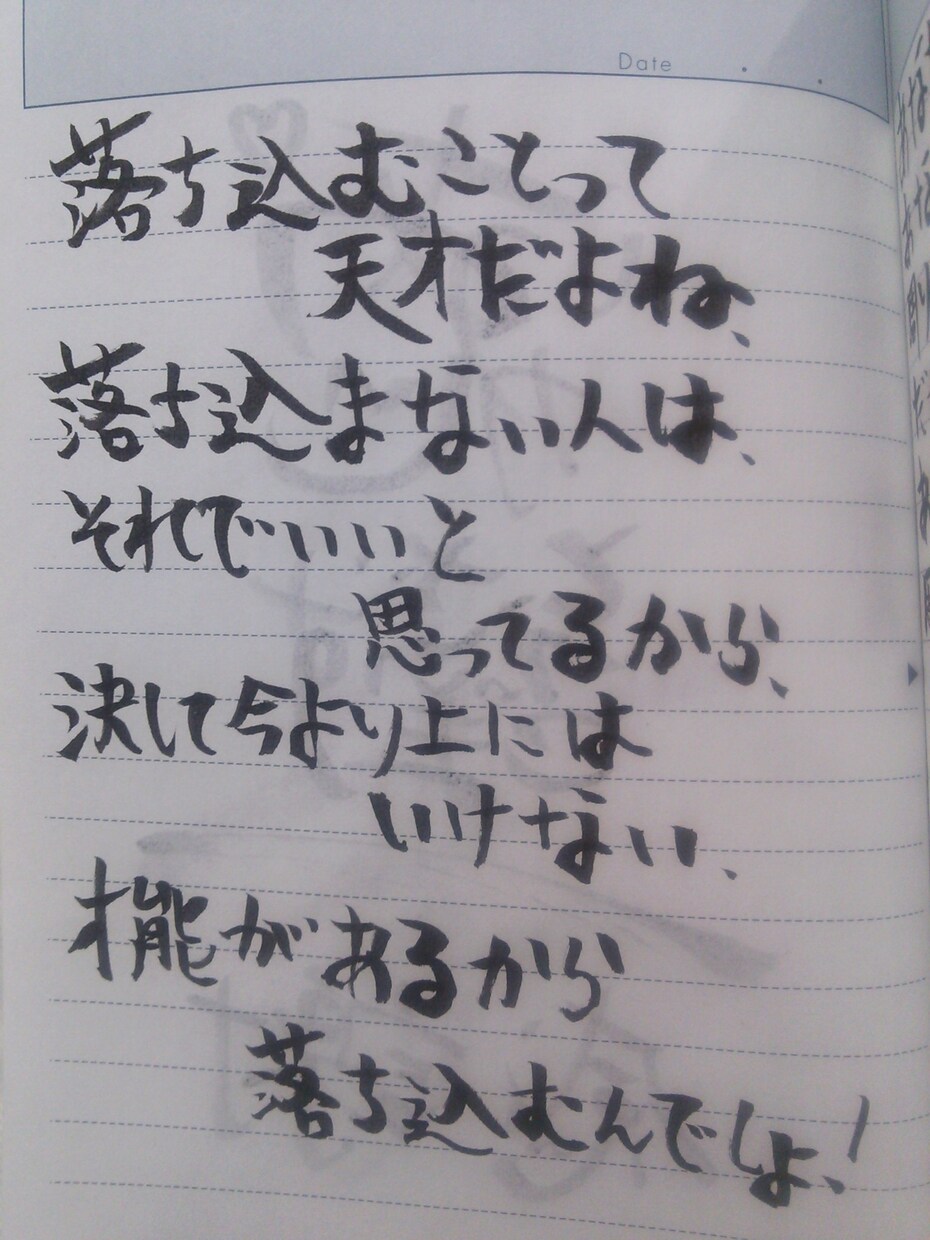 Date
落ち込むことって
天才だよね、
落ち込まない人は、
それでいいと
思ってるから、
決して今より上には
いけない、
才能があるから
落ち込むんでしょ!